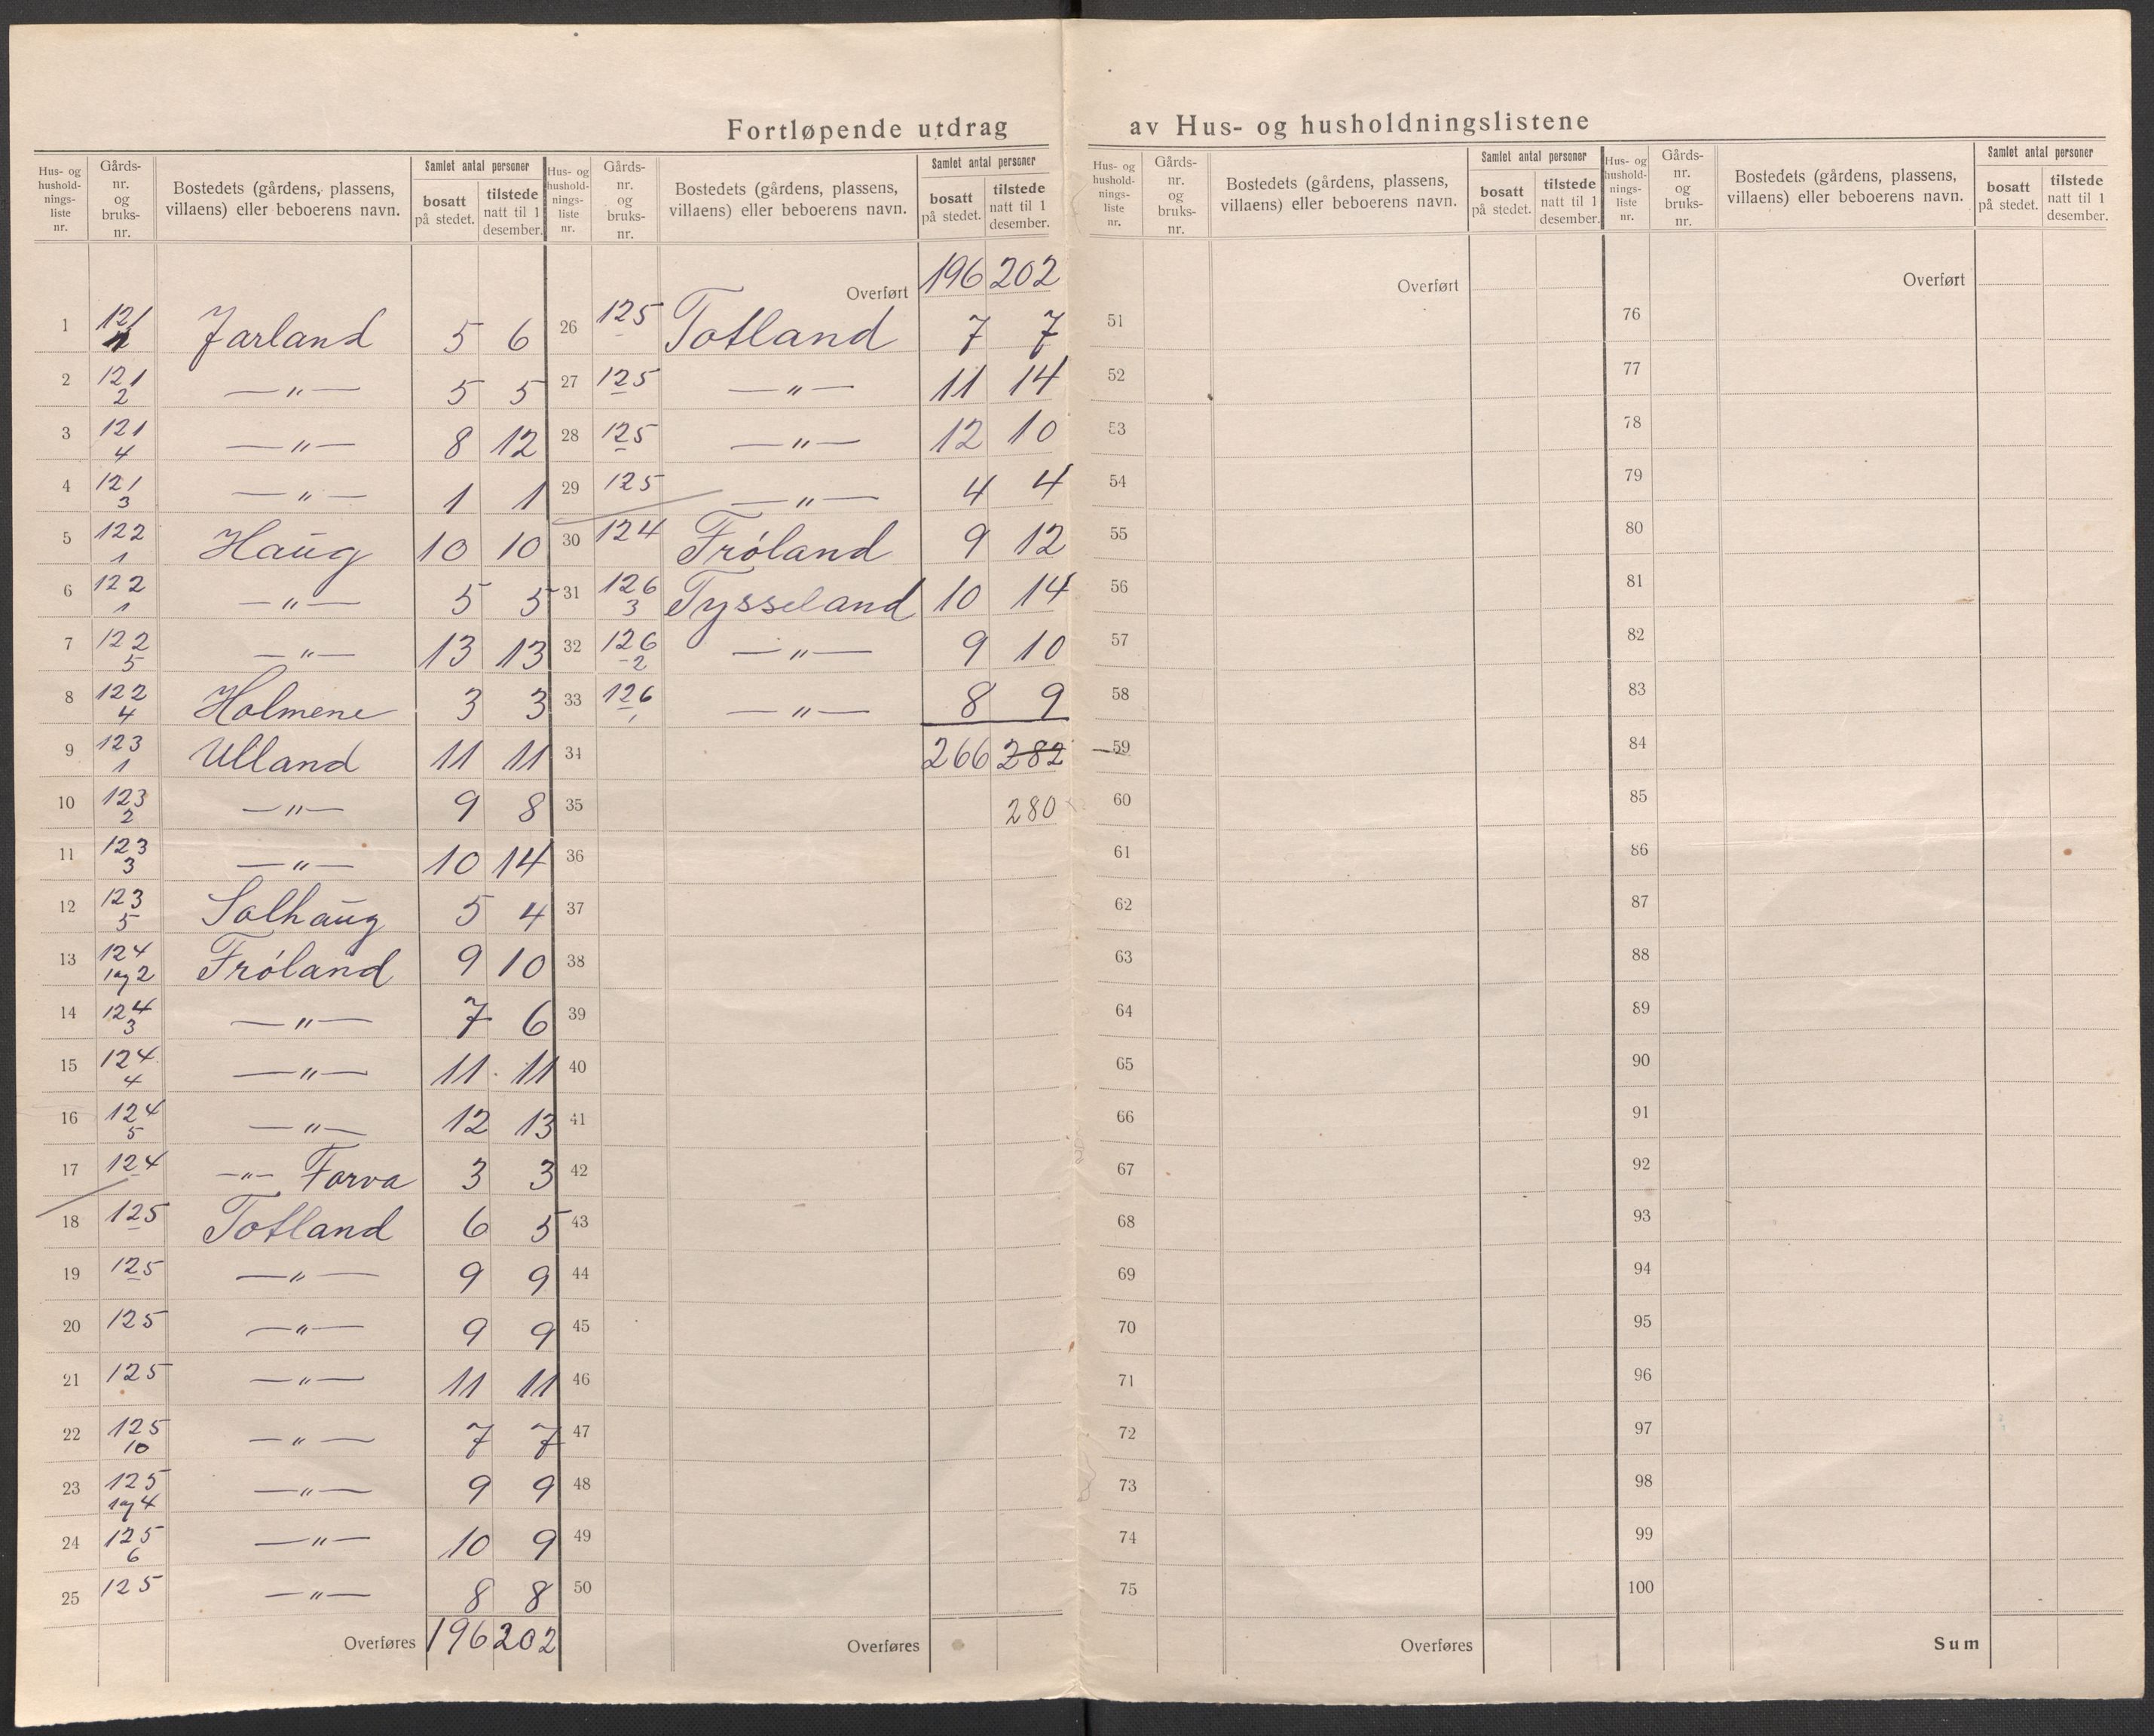 Fortløpende utdrag av Hus- og husholdningslistene
Hus- og hushold-nings-liste nr. Gårds-nr. og bruks-nr. Bostedets (gårdens, plassens, villaens) eller beboerens navn. Samlet antal personer bosatt på stedet. tilstede natt til 1 desember.
1 121 Jarland 5 6
2 121 2 —〃— 5 5
3 121 4 —〃— 8 12
4 121 3 —〃— 1 1
5 122 1 Haug 10 10
6 122 1 —〃— 5 5
7 122 5 —〃— 13 13
8 122 4 Holmene 3 3
9 123 1 Ulland 11 11
10 123 2 —〃— 9 8
11 123 3 —〃— 10 14
12 123 5 Solhaug 5 4
13 124 1 og 2 Frøland 9 10
14 124 3 —〃— 7 6
15 124 4 —〃— 11 11
16 124 5 —〃— 12 13
17 124 —〃— Forva 3 3
18 125 Totland 6 5
19 125 —〃— 9 9
20 125 —〃— 9 9
21 125 —〃— 11 11
22 125 10 —〃— 7 7
23 125 1 og 4 —〃— 9 9
24 125 6 —〃— 10 9
25 125 —〃— 8 8
Overføres 196 202
Hus- og hushold-nings-liste nr. Gårds-nr. og bruks-nr. Bostedets (gårdens, plassens, villaens) eller beboerens navn. Samlet antal personer bosatt på stedet. tilstede natt til 1 desember.
Overført 196 202
26 125 Totland 7 7
27 125 —〃— 11 14
28 125 —〃— 12 10
29 125 —〃— 4 4
30 124 Frøland 9 12
31 126 3 Tysseland 10 14
32 126 2 —〃— 9 10
33 126 1 —〃— 8 9
34 266 282
35 280
36
37
38
39
40
41
42
43
44
45
46
47
48
49
50
Overføres
Hus- og hushold-nings-liste nr. Gårds-nr. og bruks-nr. Bostedets (gårdens, plassens, villaens) eller beboerens navn. Samlet antal personer bosatt på stedet. tilstede natt til 1 desember.
Overført
51
52
53
54
55
56
57
58
59
60
61
62
63
64
65
66
67
68
69
70
71
72
73
74
75
Overføres
Hus- og hushold-nings-liste nr. Gårds-nr. og bruks-nr. Bostedets (gårdens, plassens, villaens) eller beboerens navn. Samlet antal personer bosatt på stedet. tilstede natt til 1 desember.
Overført
76
77
78
79
80
81
82
83
84
85
86
87
88
89
90
91
92
93
94
95
96
97
98
99
100
Sum